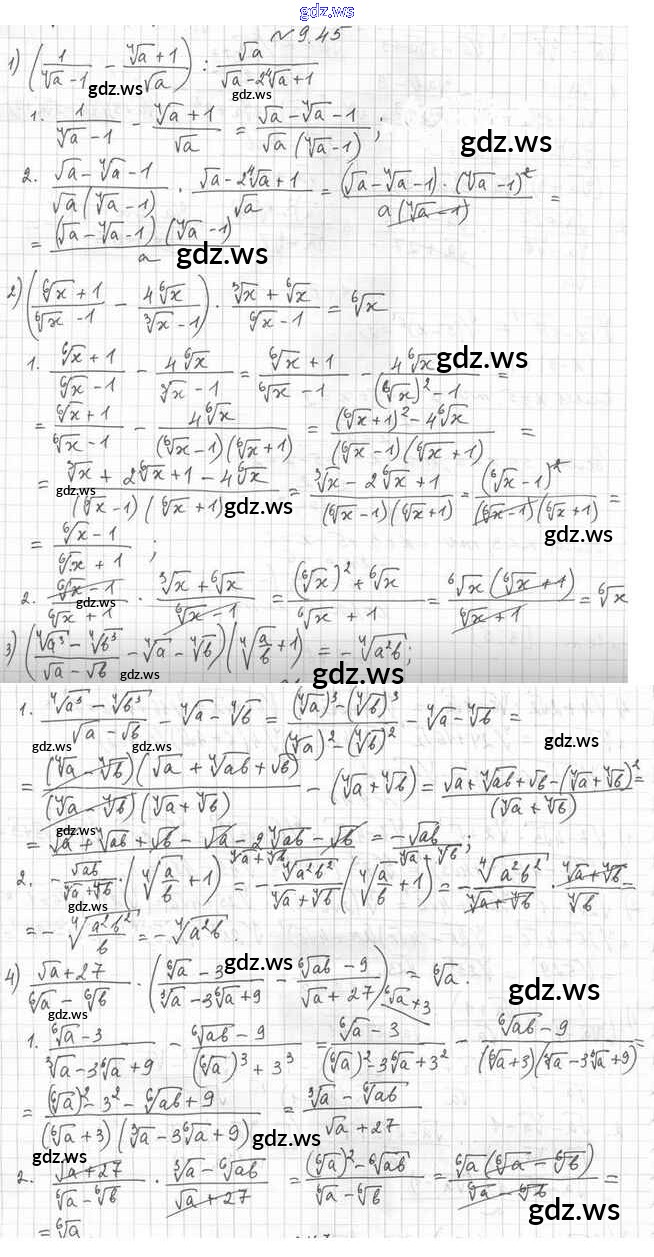 gdz.ws
№ 9.45
1) (1/(⁴√a − 1) − (⁴√a + 1)/√a) : √a/(√a − 2⁴√a + 1)
gdz.ws gdz.ws
1. 1/(⁴√a − 1) − (⁴√a + 1)/√a = (√a − ⁴√a − 1)/(√a (⁴√a − 1));
gdz.ws
2. (√a − ⁴√a − 1)/(√a (⁴√a − 1)) · (√a − 2⁴√a + 1)/√a = ((√a − ⁴√a − 1) · (⁴√a − 1)²)/(a (⁴√a − 1)) =
= ((√a − ⁴√a − 1) (⁴√a − 1))/a
gdz.ws
2) ((⁶√x + 1)/(⁶√x − 1) − 4⁶√x/(³√x − 1)) · (³√x + ⁶√x)/(⁶√x − 1) = ⁶√x
1. (⁶√x + 1)/(⁶√x − 1) − 4⁶√x/(³√x − 1) = (⁶√x + 1)/(⁶√x − 1) − 4⁶√x/((⁶√x)² − 1) =
gdz.ws
= (⁶√x + 1)/(⁶√x − 1) − 4⁶√x/((⁶√x − 1)(⁶√x + 1)) = ((⁶√x + 1)² − 4⁶√x)/((⁶√x − 1)(⁶√x + 1)) =
= (³√x + 2⁶√x + 1 − 4⁶√x)/((⁶√x − 1)(⁶√x + 1)) = (³√x − 2⁶√x + 1)/((⁶√x − 1)(⁶√x + 1)) = (⁶√x − 1)²/((⁶√x − 1)(⁶√x + 1)) =
gdz.ws gdz.ws
gdz.ws
= (⁶√x − 1)/(⁶√x + 1);
2. (⁶√x − 1)/(⁶√x + 1) · (³√x + ⁶√x)/(⁶√x − 1) = ((⁶√x)² + ⁶√x)/(⁶√x + 1) = ⁶√x (⁶√x + 1)/(⁶√x + 1) = ⁶√x
gdz.ws
3) ((⁴√a³ − ⁴√b³)/(√a − √b) − ⁴√a − ⁴√b)(⁴√(a/b) + 1) = −⁴√(a²b);
gdz.ws gdz.ws
1. (⁴√a³ − ⁴√b³)/(√a − √b) − ⁴√a − ⁴√b = ((⁴√a)³ − (⁴√b)³)/((⁴√a)² − (⁴√b)²) − ⁴√a − ⁴√b =
gdz.ws gdz.ws gdz.ws
= ((⁴√a − ⁴√b)(√a + ⁴√ab + √b))/((⁴√a − ⁴√b)(⁴√a + ⁴√b)) − (⁴√a + ⁴√b) = (√a + ⁴√ab + √b − (⁴√a + ⁴√b)²)/(⁴√a + ⁴√b) =
gdz.ws
= (√a + ⁴√ab + √b − √a − 2⁴√ab − √b)/(⁴√a + ⁴√b) = −√ab/(⁴√a + ⁴√b);
2. −√ab/(⁴√a + ⁴√b) · (⁴√(a/b) + 1) = −⁴√(a²b²)/(⁴√a + ⁴√b) (⁴√(a/b) + 1) = −⁴√(a²b²)/(⁴√a + ⁴√b) · (⁴√a + ⁴√b)/⁴√b =
gdz.ws
= −⁴√(a²b²/b) = −⁴√(a²b).
4) (√a + 27)/(⁶√a − ⁶√b) · ((⁶√a − 3)/(³√a − 3⁶√a + 9) − (⁶√ab − 9)/(√a + 27)) = ⁶√a.
⁶√a + 3
gdz.ws gdz.ws
gdz.ws
1. (⁶√a − 3)/(³√a − 3⁶√a + 9) − (⁶√ab − 9)/((⁶√a)³ + 3³) = (⁶√a − 3)/((⁶√a)² − 3⁶√a + 3²) − (⁶√ab − 9)/((⁶√a + 3)(³√a − 3⁶√a + 9)) =
= ((⁶√a)² − 3² − ⁶√ab + 9)/((⁶√a + 3)(³√a − 3⁶√a + 9)) = (³√a − ⁶√ab)/(√a + 27)
gdz.ws gdz.ws
2. (√a + 27)/(⁶√a − ⁶√b) · (³√a − ⁶√ab)/(√a + 27) = ((⁶√a)² − ⁶√ab)/(⁶√a − ⁶√b) = ⁶√a (⁶√a − ⁶√b)/(⁶√a − ⁶√b) =
gdz.ws
= ⁶√a